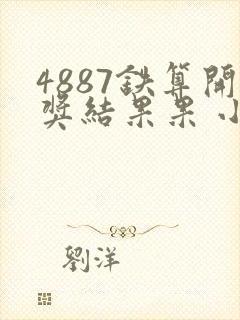 4887鉄算開
奖結果果小
劉洋